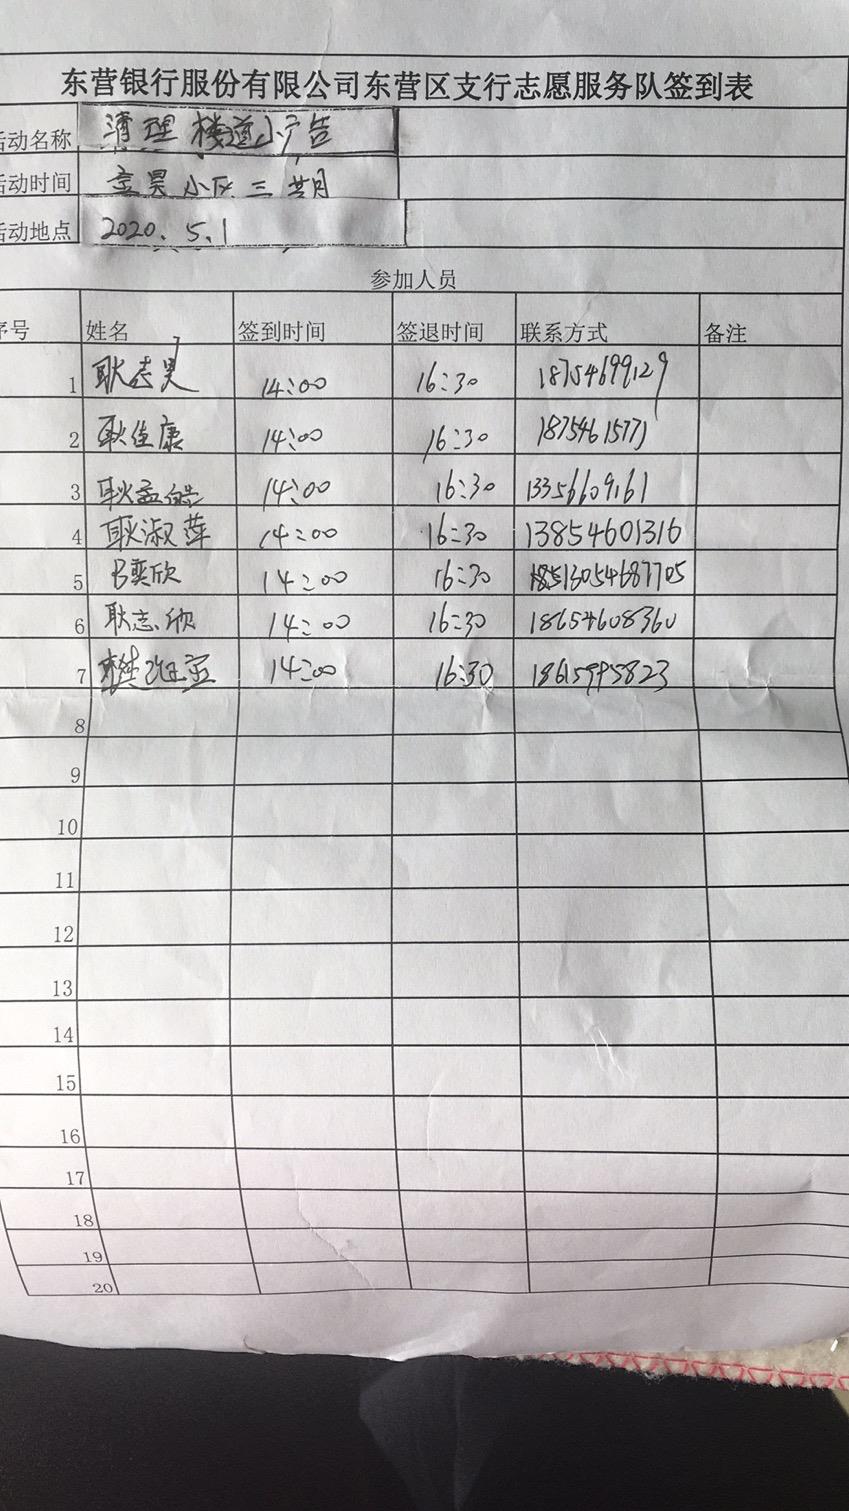 东营银行股份有限公司东营区支行志愿服务队签到表
活动名称 清理楼道小广告
活动时间 小区三期
活动地点 2020.5.1
参加人员
序号 姓名 签到时间 签退时间 联系方式 备注
1 耿志昊 14:00 16:30 18754699129
2 耿佳康 14:00 16:30 18754615771
3 耿孟皓 14:00 16:30 13356609161
4 耿淑萍 14:00 16:30 13854601316
5 奕欣 14:00 16:30
6 耿志欣 14:00 16:30 18654608360
7 樊 宝 14:00 16:30 18615995823
8
9
10
11
12
13
14
15
16
17
18
19
20